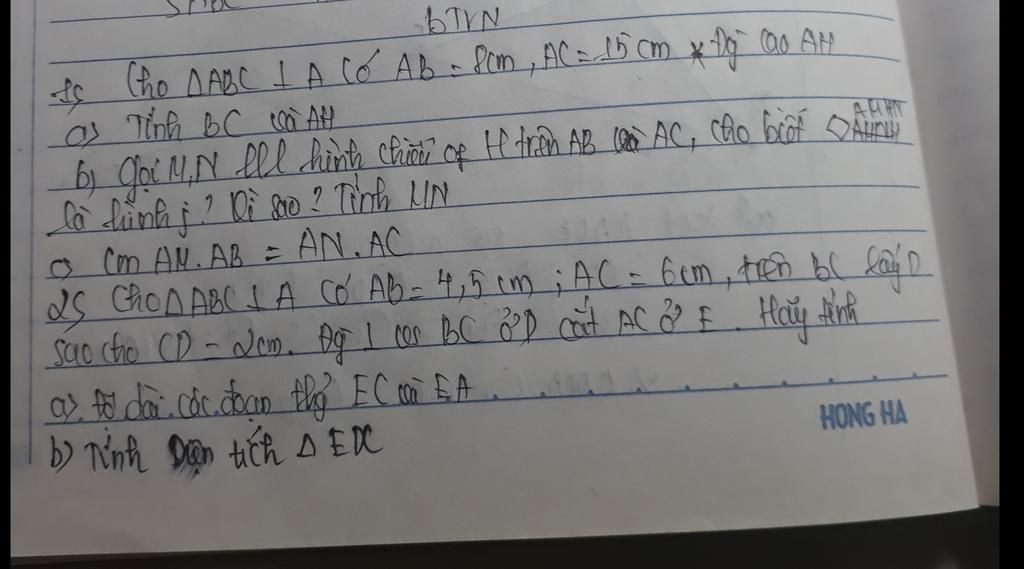 BTVN
1, Cho ΔABC ⊥ A Có AB = 8cm, AC = 15 cm * Đg cao AH
a, Tính BC và AH
b, gọi M,N lll hình chiếu of H trên AB và AC, cho biết ◇ AMHN
là hình j? Vì sao? Tính MN
c, Cm AM.AB = AN.AC
2, Cho ΔABC ⊥ A Có AB = 4,5 cm ; AC = 6cm, trên BC lấy D
sao cho CD = 2cm. Đg ⊥ BC ở D cắt AC ở E. Hãy tính
a, độ dài các đoạn thg EC và EA
b) Tính Diện tích Δ EDC
HONG HA